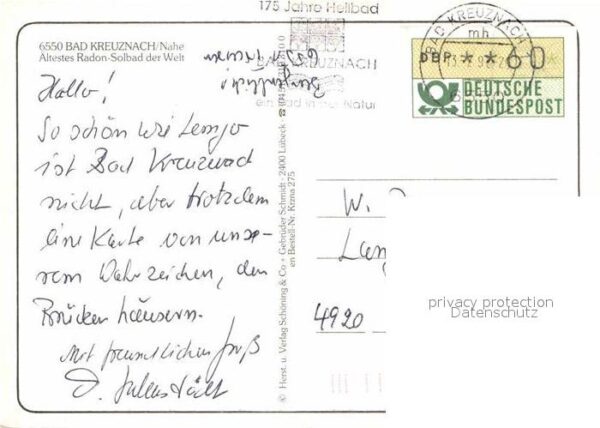 175 Jahre Heilbad
BAD KREUZNACH
ein Bad in der Natur
BAD KREUZNACH
mh
DBP * * 60 *
DEUTSCHE
BUNDESPOST
6550 BAD KREUZNACH/Nahe
Ältestes Radon-Solbad der Welt
Hallo!
So schön wie Lemgo
ist Bad Kreuznach
nicht, aber trotzdem
eine Karte von unse-
rem Wahrzeichen, den
Brücken häusern.
Mit freundlichem Gruß
© Herst. u. Verlag Schöning & Co + Gebrüder Schmidt - 2400 Lübeck
en Bestell-Nr. Krzna 275
W.
Lan
4920
privacy protection
Datenschutz